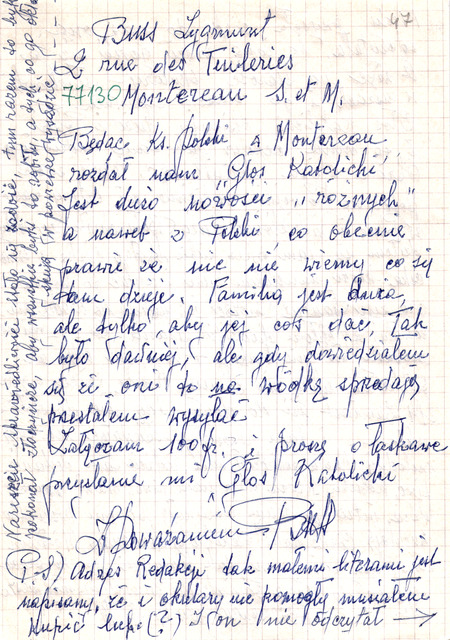 47
Buss Zygmunt
2 rue des Tuileries
77130 Montereau S. et M.
Będąc Ks. Polski w Montereau
rozdał nam „Głos Katolicki”
Jest dużo nowości „różnych”
a nawet z Polski, co obecnie
prawie że nic nie wiemy co się
tam dzieje. Familia jest duża,
ale tylko, aby jej coś dać, Tak
było dawniej, ale gdy dowiedziałem
się że oni to na wódkę sprzedają
przestałem wysyłać
Załączam 100 fr. i proszę o łaskawe
przysłanie mi Głos Katolicki
Z Poważaniem Buss
P.S) Adres Redakcji tak małemi literami jest
napisany, że i okulary nie pomogły musiałem
kupić lupę (?) I on nie odczytał →
Nareszcie sprawiedliwości stało się zadość, tym razem to
pokonał